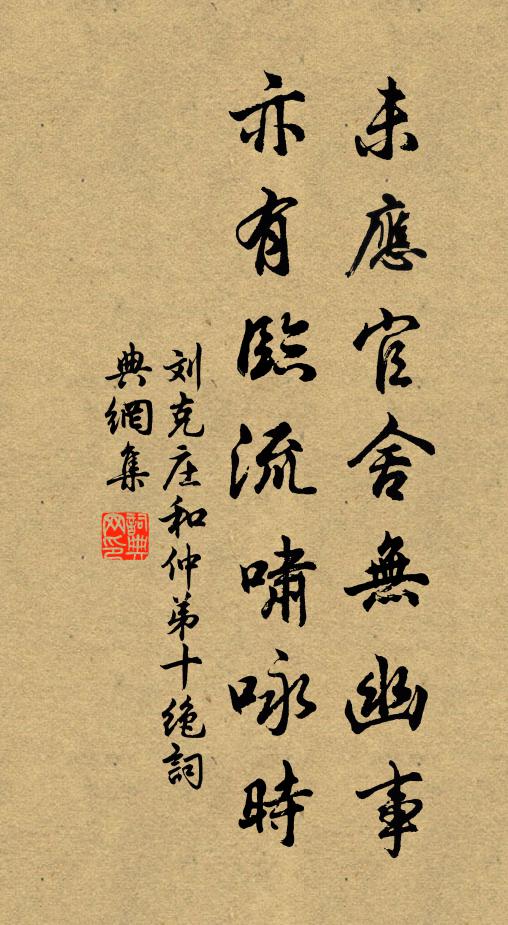 未應官舍無幽事
亦有臨流嘯咏時
刘克庄和仲弟十绝詞
典網集
詞典
网印